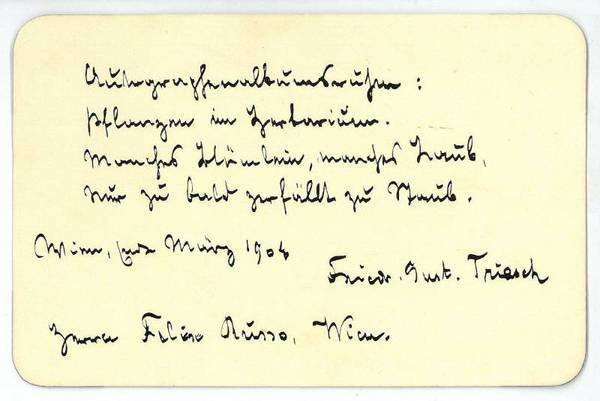 Autographenalbumsruhm:
Pflanzen im Herbarium.
Manches Blümlein, manches Laub,
Nur zu bald zerfällt zu Staub.
Wien, Ende März 1904
Friedr. Gust. Triesch
Herrn Felix Russo, Wien.